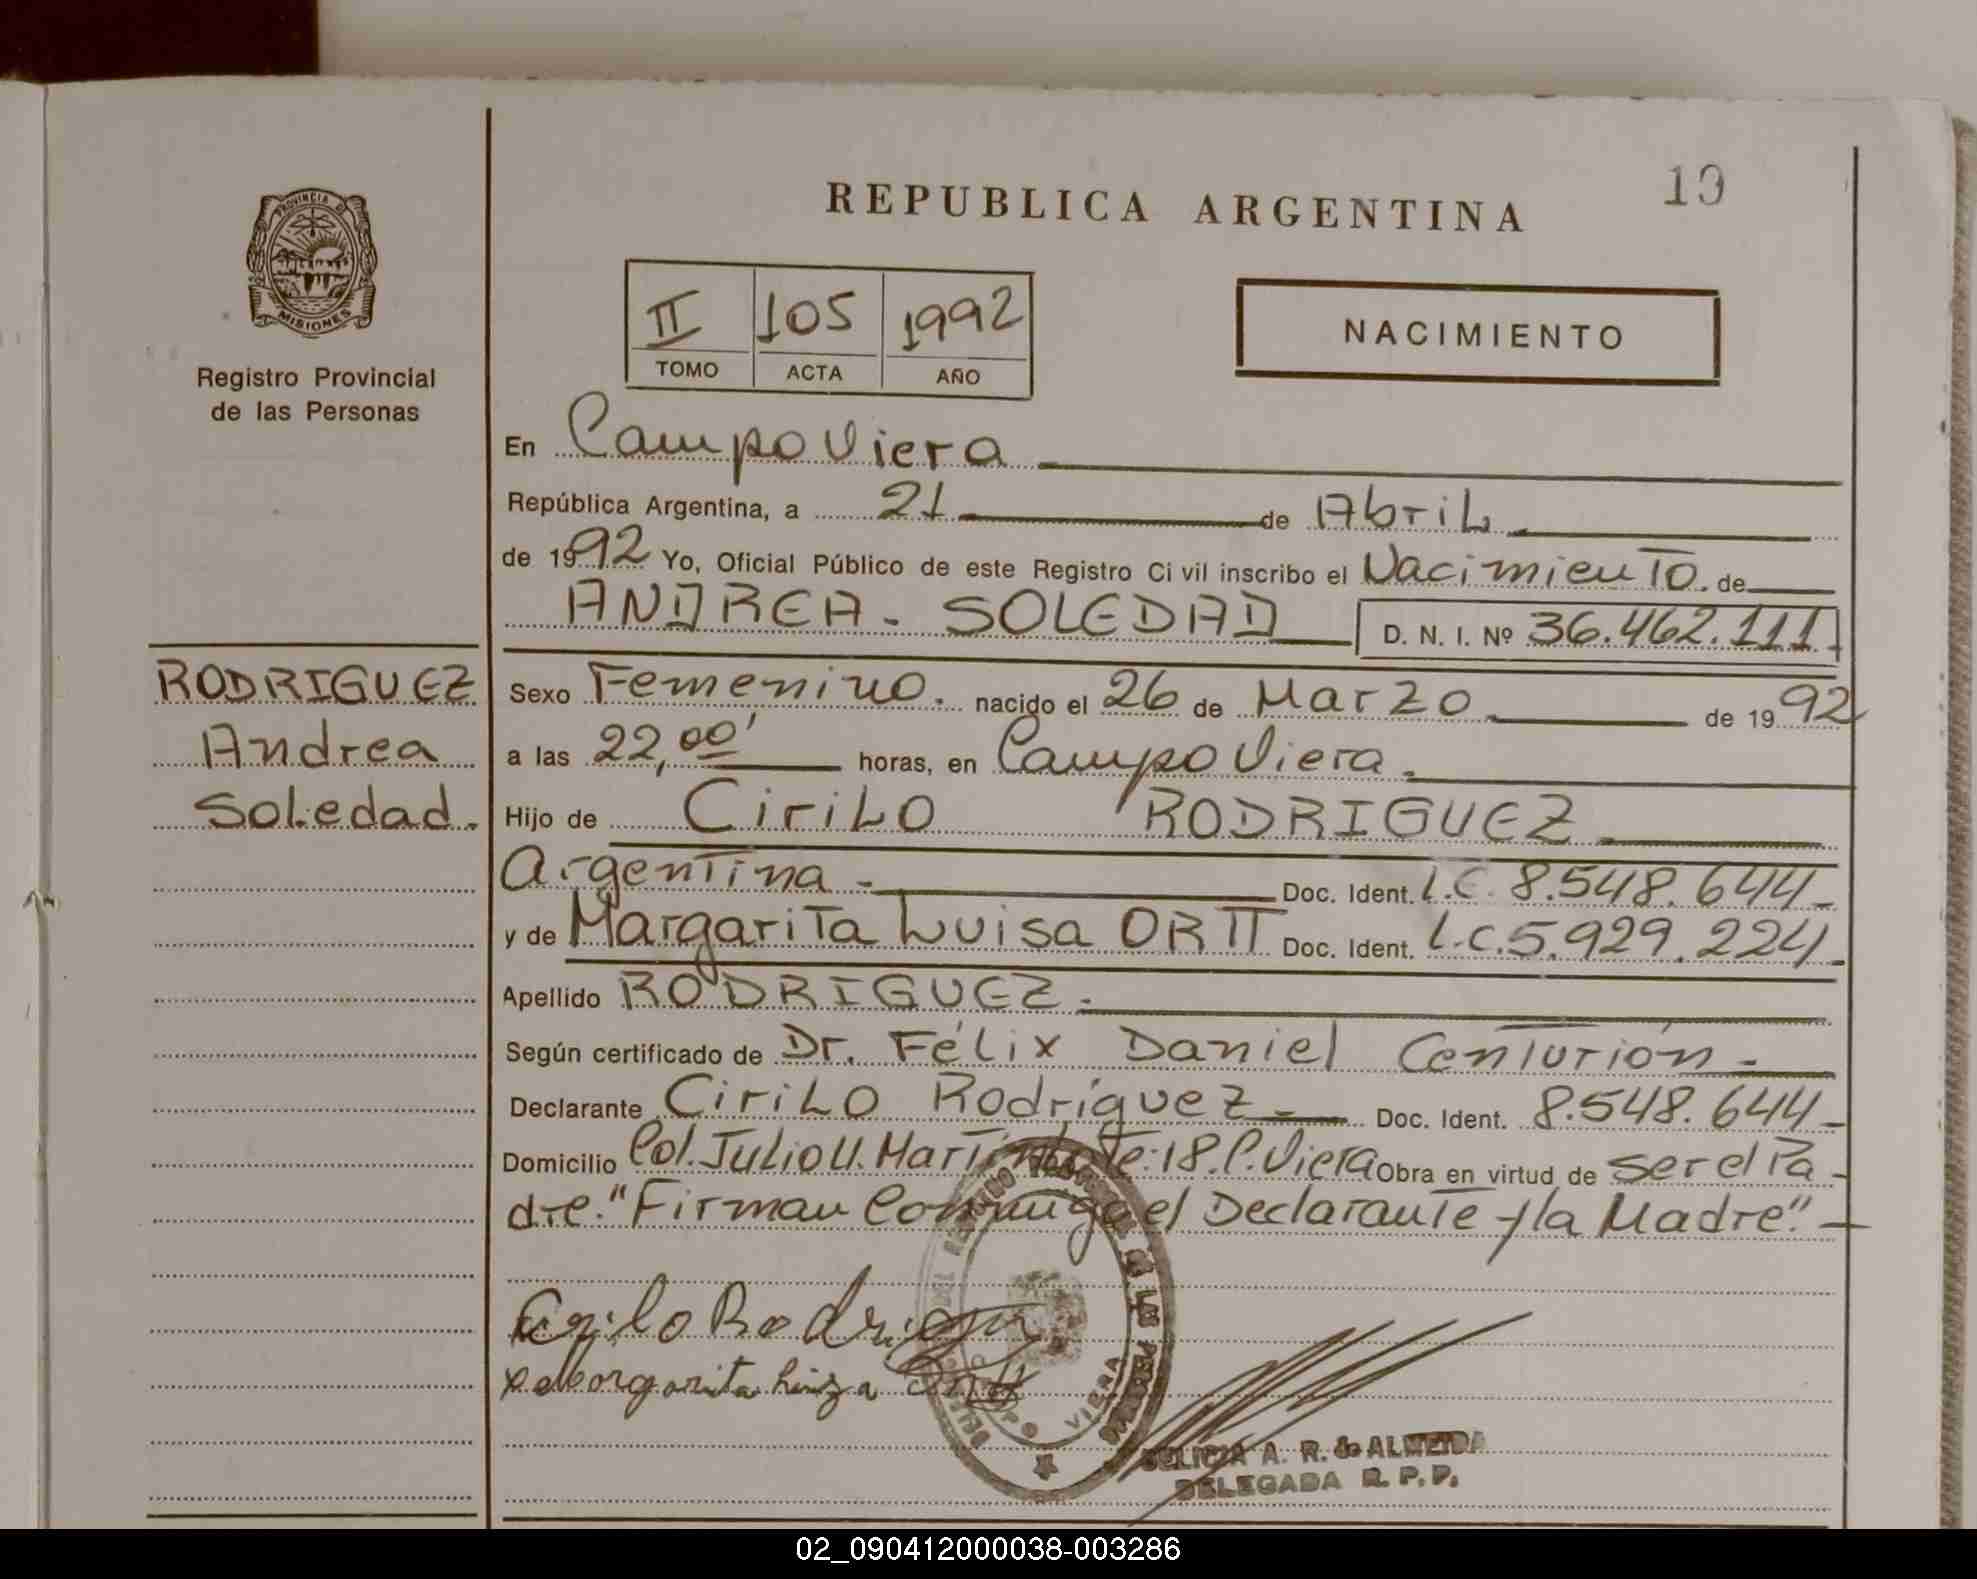 PROVINCIA DE
MISIONES
Registro Provincial
de las Personas
RODRIGUEZ
Andrea
Soledad.
REPUBLICA ARGENTINA
19
II 105 1992
TOMO ACTA AÑO
NACIMIENTO
En Campo Viera
República Argentina, a 21 de Abril
de 1992 Yo, Oficial Público de este Registro Civil inscribo el Nacimiento. de
ANDREA - SOLEDAD D. N. I. Nº 36.462.111
Sexo Femenino. nacido el 26 de Marzo de 1992
a las 22,00' horas, en Campo Viera.
Hijo de Cirilo RODRIGUEZ
Argentina - Doc. Ident. L.C. 8.548.644-
y de Margarita Luisa ORTT Doc. Ident. L.C. 5.929.224-
Apellido RODRIGUEZ.
Según certificado de Dr. Félix Daniel Centurión -
Declarante Cirilo Rodríguez - Doc. Ident. 8.548.644-
Domicilio Col. Julio U. Martin Lote: 18. C. Viera Obra en virtud de ser el Pa-
dre. "Firman Conmigo el Declarante y la Madre". -
Cirilo Rodriguez
Margarita Luiza Ortt
VIERA
DELICIA A. R. de ALMEIDA
DELEGADA R. P. P.
02_090412000038-003286